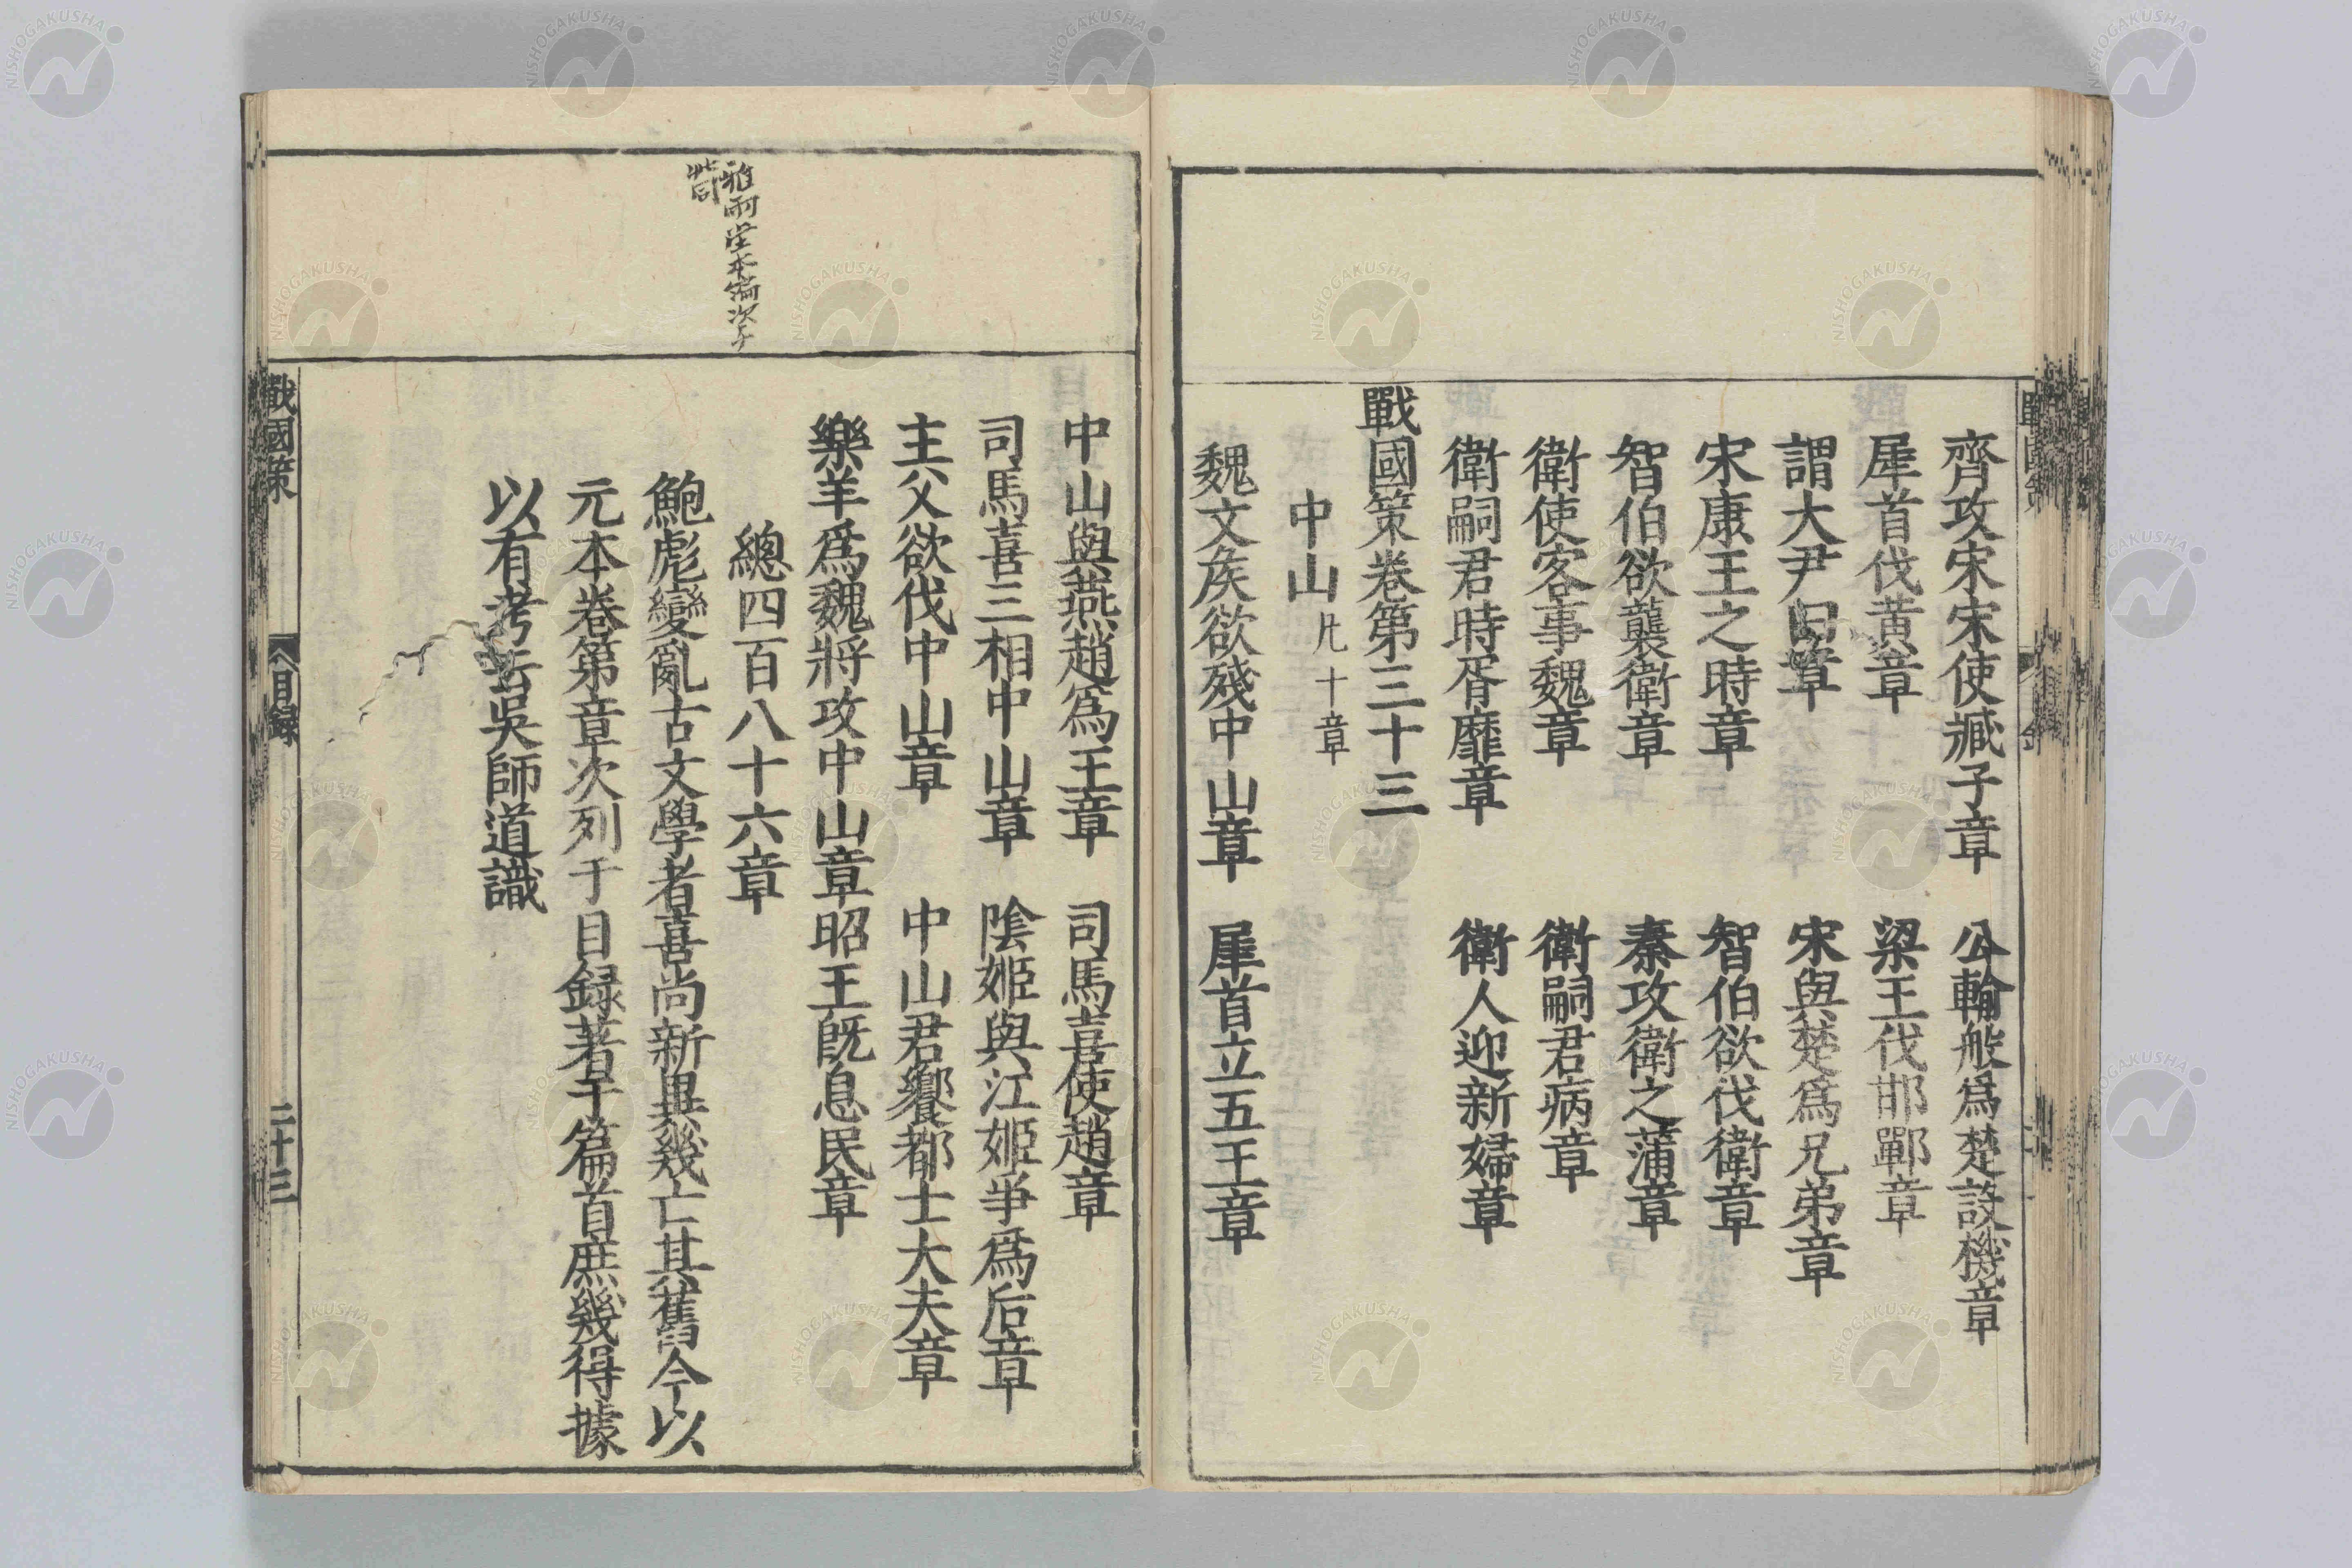 齊攻宋宋使臧子章　公輸般爲楚設機章
犀首伐黃章　梁王伐邯鄲章
謂大尹曰章　宋與楚爲兄弟章
宋康王之時章　智伯欲伐衛章
智伯欲襲衛章　秦攻衛之蒲章
衛使客事魏章　衛嗣君病章
衛嗣君時胥靡章　衛人迎新婦章
戰國策卷第三十三
中山凡十章
魏文矦欲殘中山章　犀首立五王章
中山與燕趙爲王章　司馬喜使趙章
司馬喜三相中山章　陰姬與江姬爭爲后章
主父欲伐中山章　中山君饗都士大夫章
樂羊爲魏將攻中山章昭王既息民章
總四百八十六章
鮑彪變亂古文學者喜尚新異幾亡其舊今以
元本卷第章次列于目録著于篇首庶幾得據
以有考云吳師道識
雅雨堂本篇次子
此同
戰國策
目録
二十三
NISHOGAKUSHA